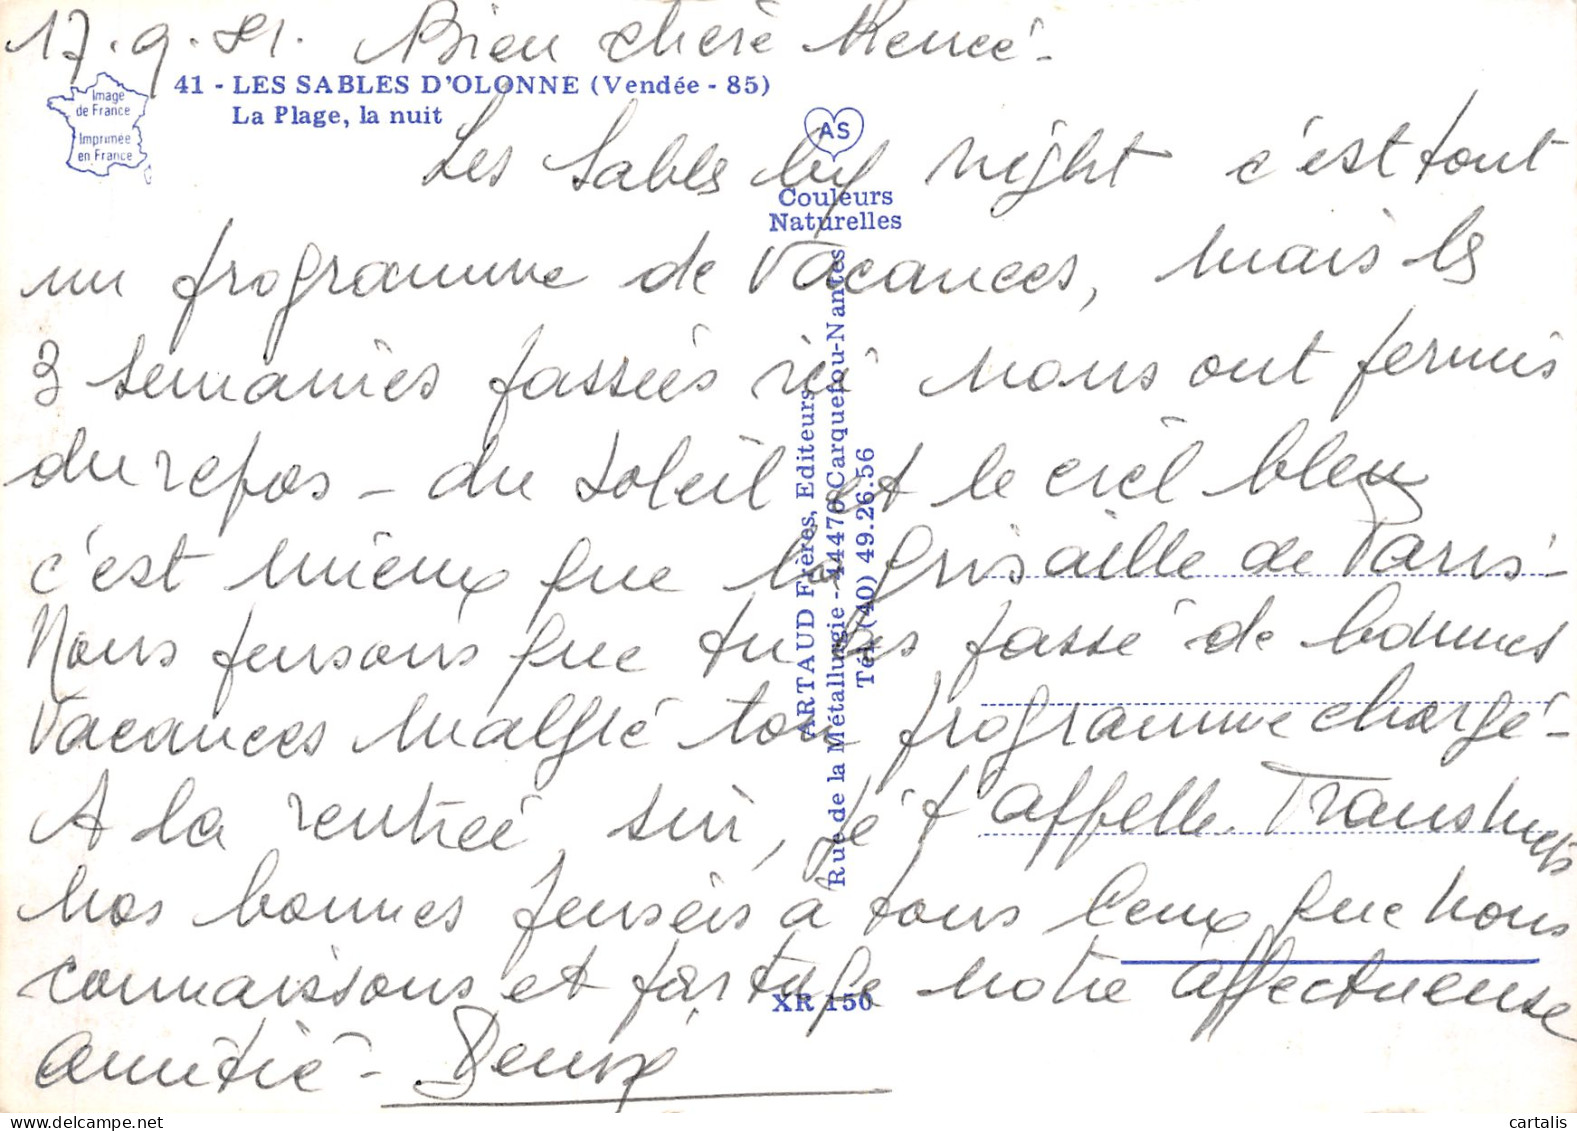 17.9.81. Bien chère Renée -
41 - LES SABLES D'OLONNE (Vendée - 85)
La Plage, la nuit
Image
de France
Imprimée
en France
AS
Couleurs
Naturelles
Les Sables by night c'est tout
un programme de Vacances, mais les
3 semaines passées ici nous ont permis
du repos - du soleil et le ciel bleu
c'est mieux que la grisaille de Paris -
Nous pensons que tu as passé de bonnes
Vacances malgré ton programme chargé -
A la rentrée sur, je t'appelle. Transmets
nos bonnes pensées à tous ceux que nous
connaissons et partage notre affectueuse
amitié - Denise
ARTAUD Frères, Editeurs
Rue de la Métallurgie - 44470 Carquefou-Nantes
Tél. (40) 49.26.56
XR 150
cartalis